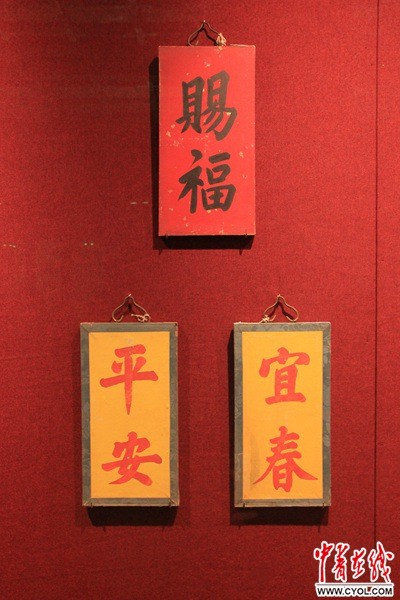 賜福
平安
宜春
中青在线
WWW.CYOL.COM